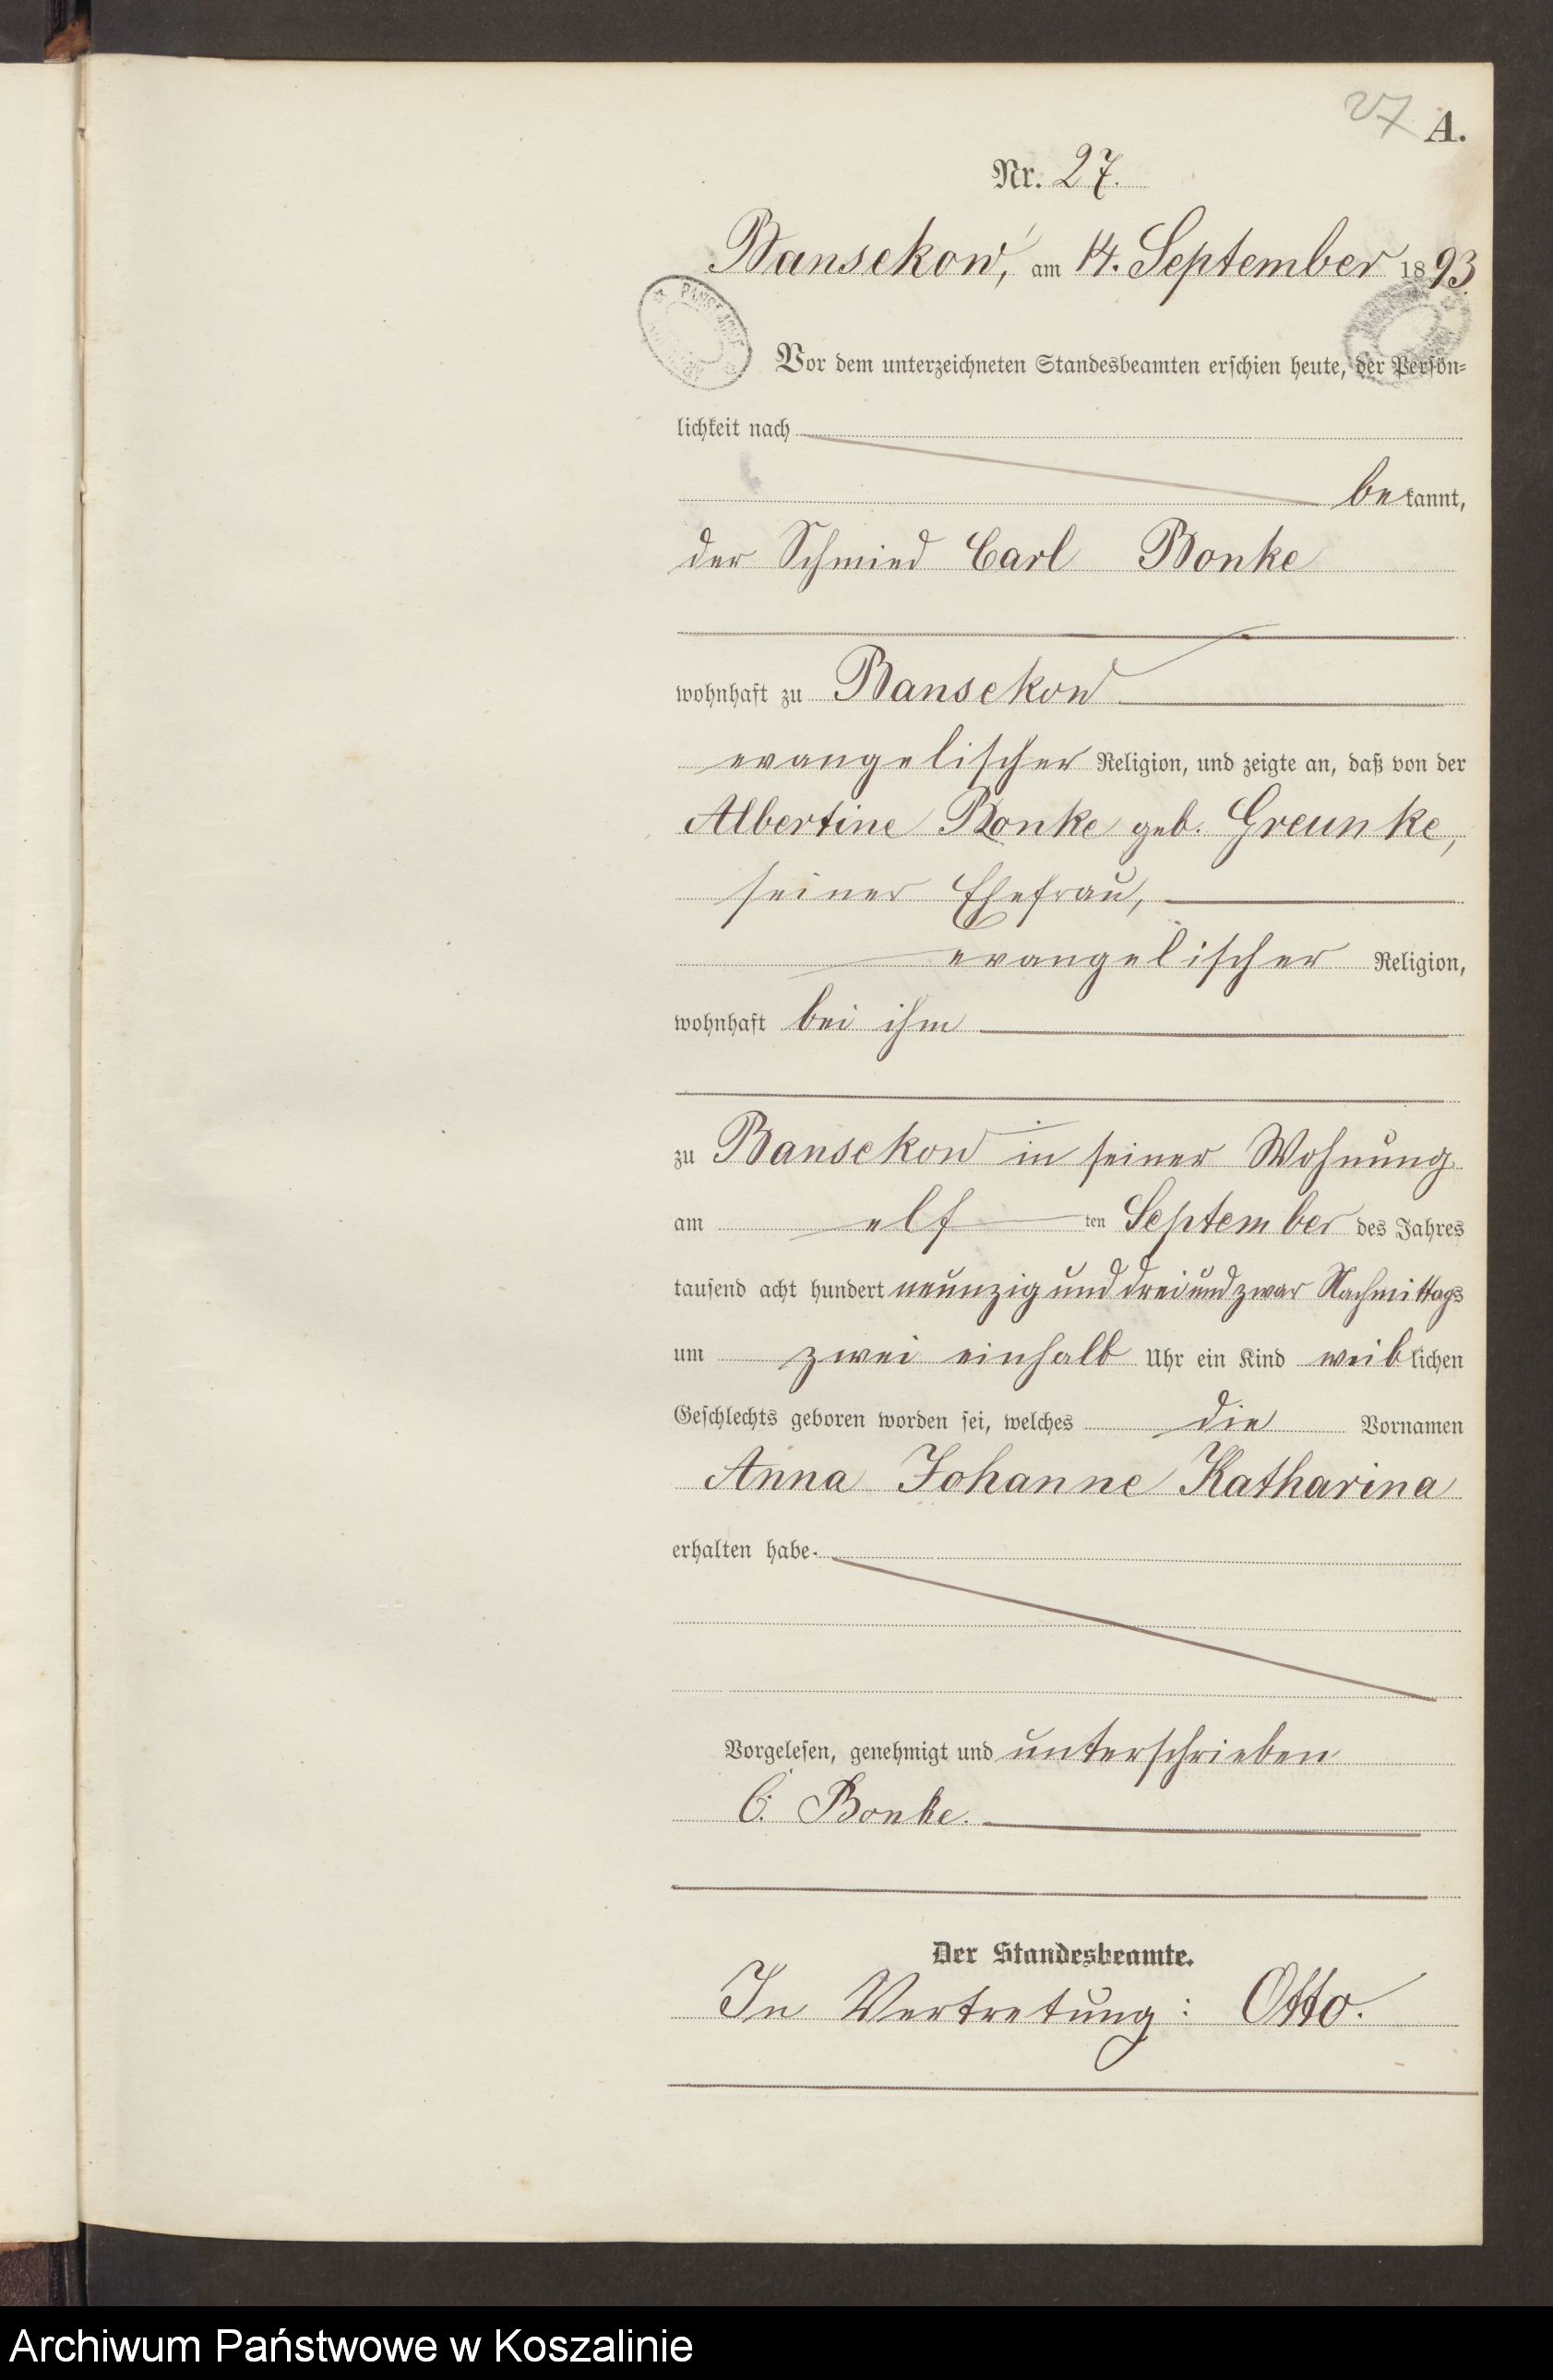 27 A.
Nr. 27.
Bansekow, am 14. September 1893.
Vor dem unterzeichneten Standesbeamten erschien heute, der Persön-
lichkeit nach
bekannt,
der Schmied Carl Bonke
wohnhaft zu Bansekow
evangelischer Religion, und zeigte an, daß von der
Albertine Bonke geb. Greunke,
seiner Ehefrau,
evangelischer Religion,
wohnhaft bei ihm
zu Bansekow in seiner Wohnung
am elf ten September des Jahres
tausend acht hundert neunzig und drei und zwar Nachmittags
um zwei einhalb Uhr ein Kind weiblichen
Geschlechts geboren worden sei, welches die Vornamen
Anna Johanne Katharina
erhalten habe.
Vorgelesen, genehmigt und unterschrieben
C. Bonke.
Der Standesbeamte.
In Vertretung: Otto.
Archiwum Państwowe w Koszalinie